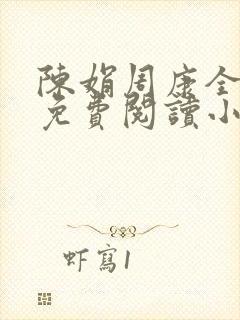 陳娟周康全
免費閱讀小
虾寫1